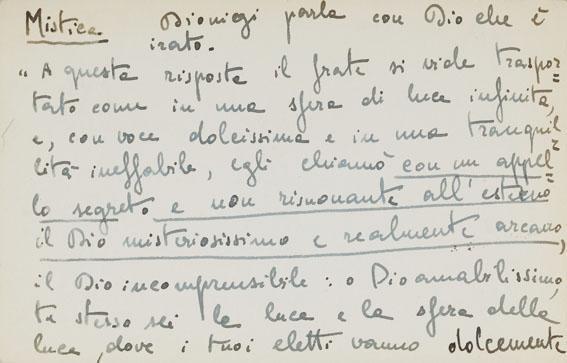 Mistica. Dionigi parla con Dio che è
irato.
"A questa risposta il frate si vide traspor=
tato come in una sfera di luce infinita,
e, con voce dolcissima e in una tranquil=
lità ineffabile, egli chiamò con un appel=
lo segreto e non risuonante all'esterno
il Dio misteriosissimo e realmente arcano,
il Dio incomprensibile: o Dio amabilissimo,
tu stesso sei la luce e la sfera della
luce, dove i tuoi eletti vanno dolcemente